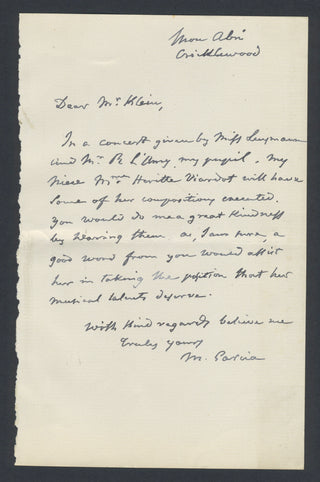 Mon Abri
Cricklewood
Dear Mr. Klein,
In a concert given by Miss
and Mr. R. my pupil, my
Niece Mme Heritte Viardot will have
some of her compositions executed.
You would do me a great Kindness
by hearing them as, I am sure, a
good word from you would assist
her in taking the position that her
musical talents deserve.
With Kind regards believe me
truly yours
M. Garcia